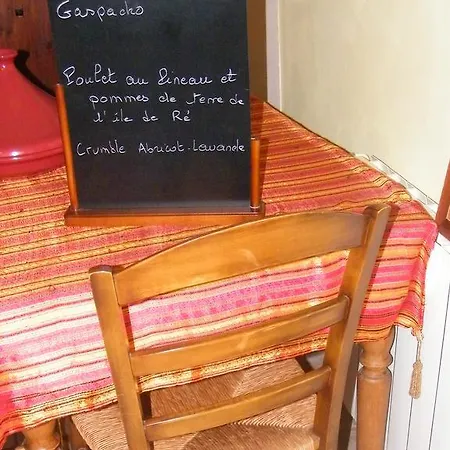 Gaspacho
Poulet au Pineau et
pommes de terre de
l'île de Ré
Crumble Abricot-Lavande